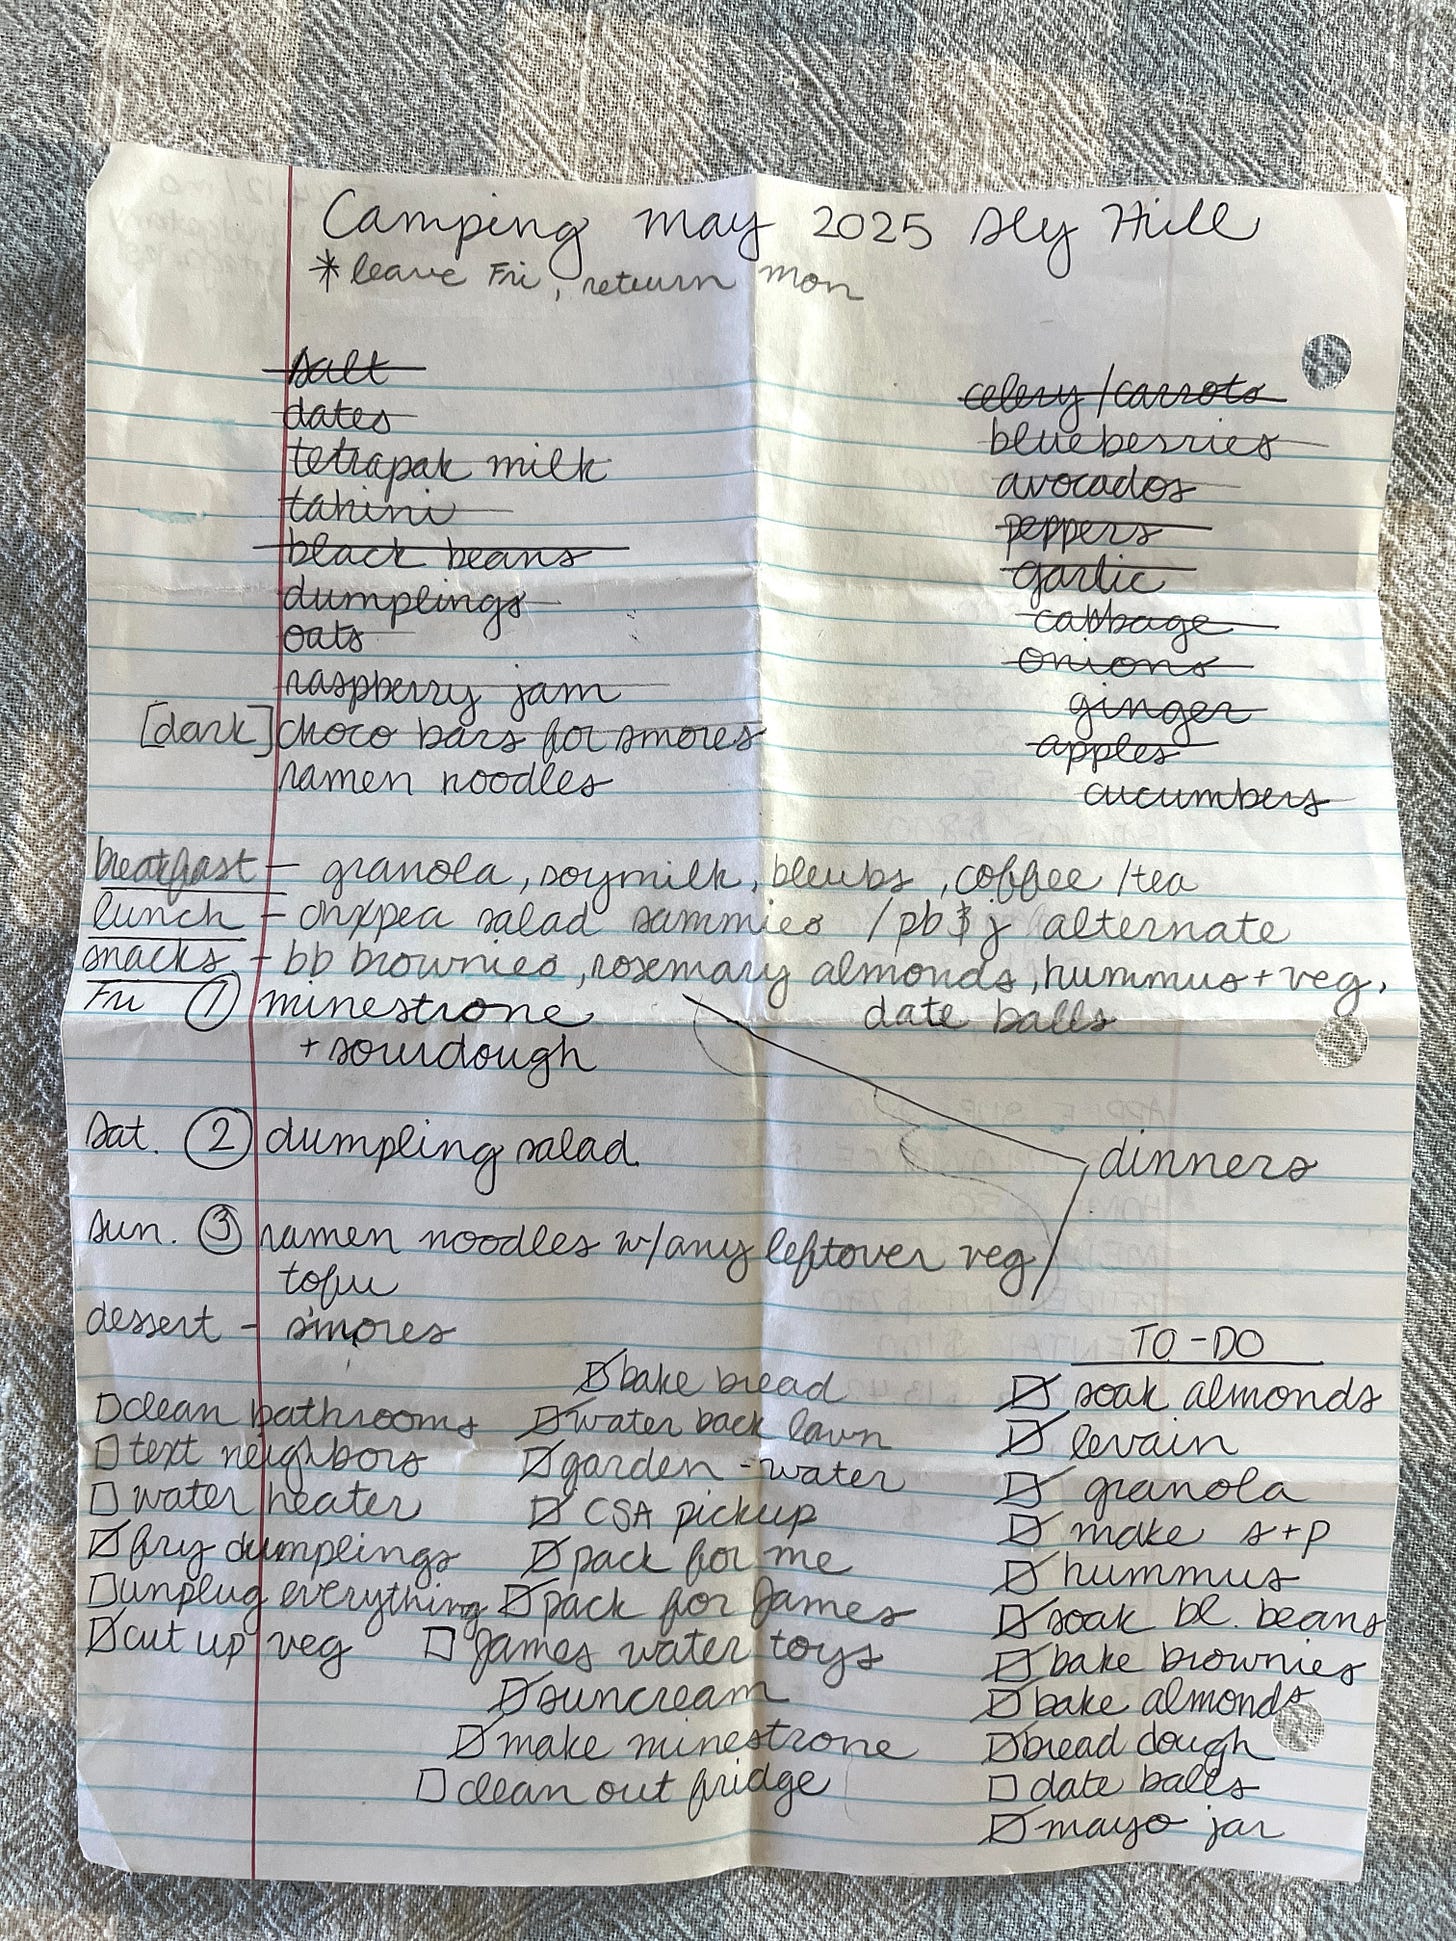 Camping may 2025 Sly Hill
* leave Fri, return mon
salt
dates
tetrapak milk
tahini
black beans
dumplings
oats
raspberry jam
[dark] choco bars for smores
ramen noodles
celery/carrots
blueberries
avocados
peppers
garlic
cabbage
onions
ginger
apples
cucumbers
breakfast - granola, soymilk, bleubs, coffee/tea
lunch - chxpea salad sammies / pb$j alternate
snacks - bb brownies, rosemary almonds, hummus + veg,
date balls
Fri ① minestrone
+ sourdough
Sat. ② dumpling salad
dinners
Sun. ③ ramen noodles w/any leftover veg
tofu
dessert - s'mores
☐ clean bathrooms
☐ text neighbors
☐ water heater
☑ fry dumplings
☐ unplug everything
☑ cut up veg
☑ bake bread
☑ water back lawn
☑ garden - water
☑ CSA pickup
☑ pack for me
☑ pack for James
☐ James water toys
☑ suncream
☑ make minestrone
☐ clean out fridge
TO-DO
☑ soak almonds
☑ levain
☑ granola
☑ make s+p
☑ hummus
☑ soak bl. beans
☑ bake brownies
☑ bake almonds
☑ bread dough
☐ date balls
☑ mayo jar